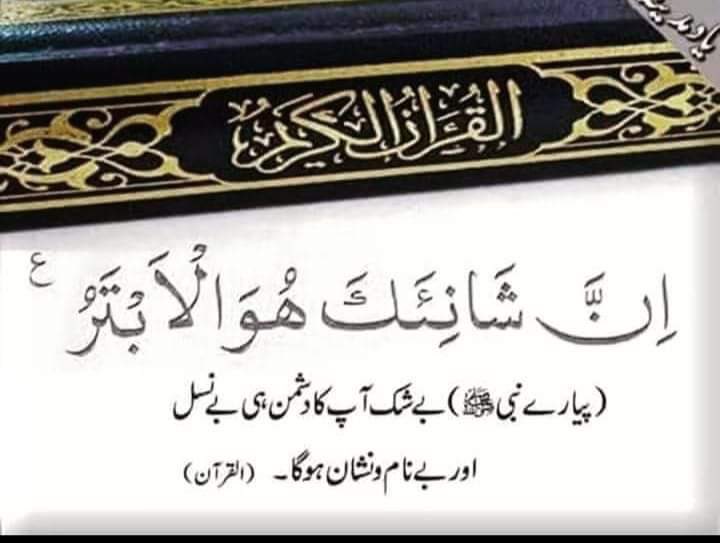 یا مدینہ
القرآن الكريم
اِنَّ شَانِئَكَ هُوَ الْاَبْتَرُ ع
(پیارے نبی ﷺ) بے شک آپ کا دشمن ہی بے نسل
اور بے نام و نشان ہوگا۔ (القرآن)